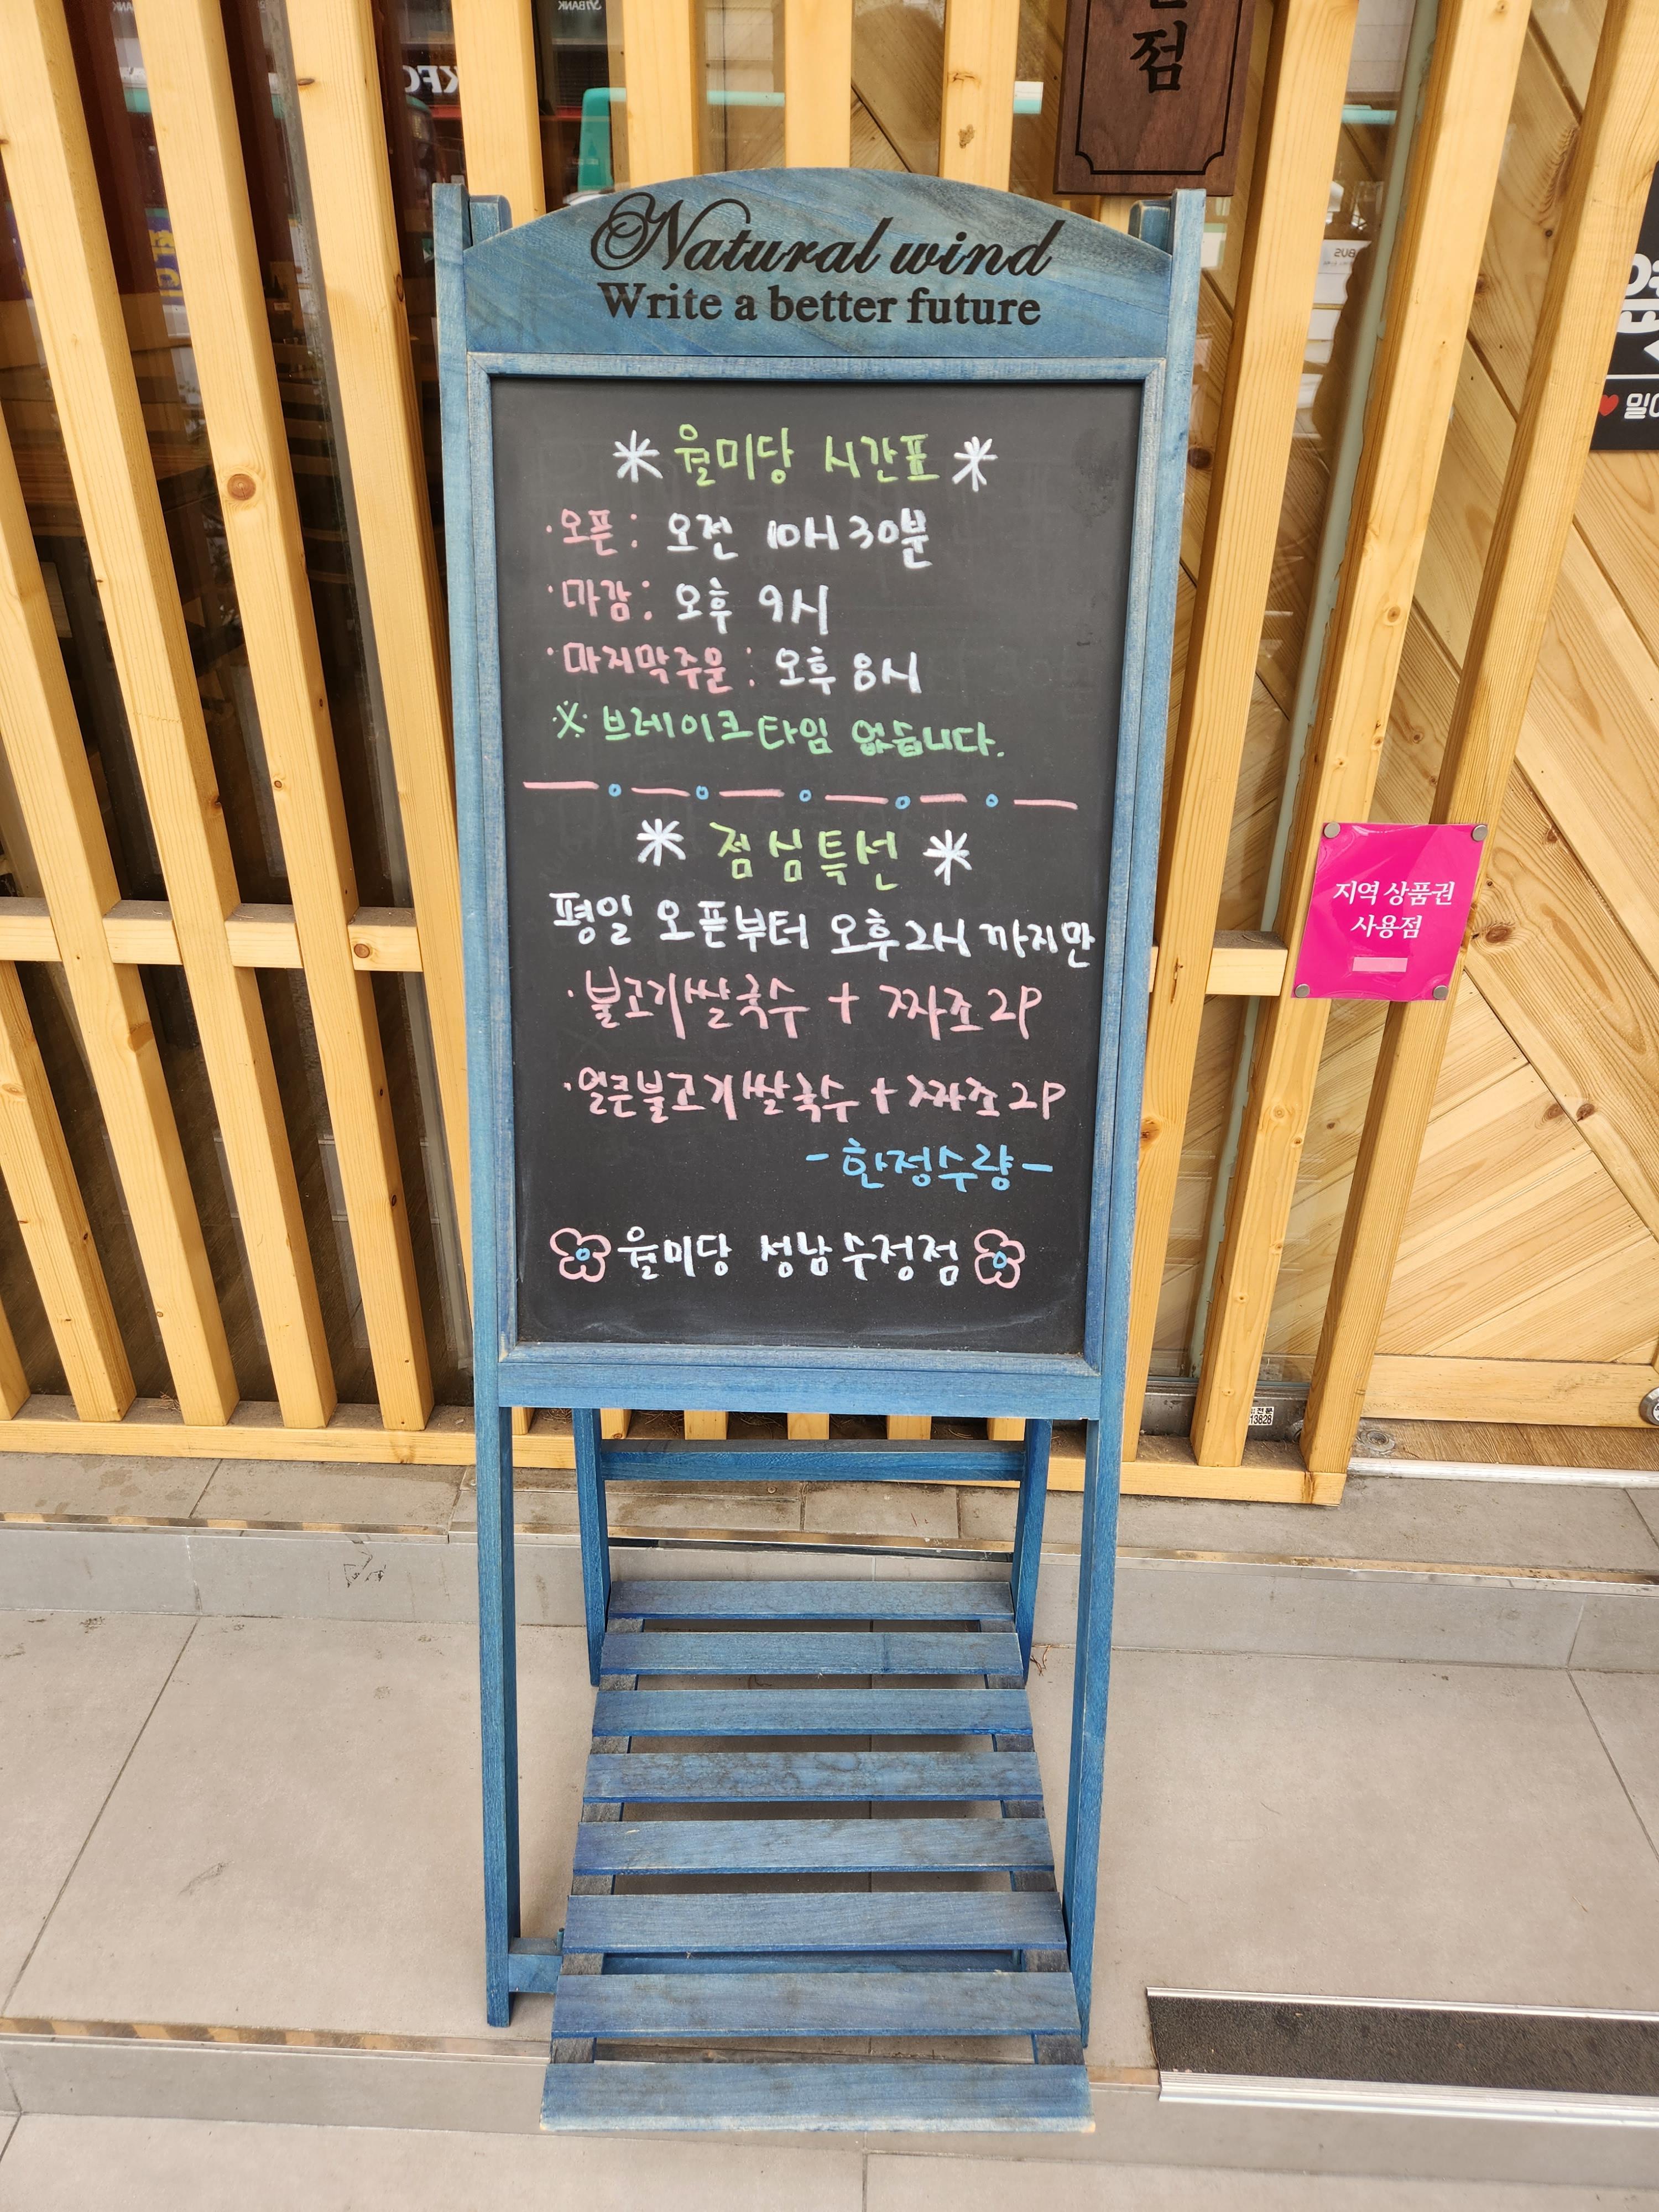 점
Natural wind
Write a better future
월미당 시간표
· 오픈 : 오전 10시 30분
· 마감 : 오후 9시
· 마지막주문 : 오후 8시
※ 브레이크타임 없습니다.
점심특선
평일 오픈부터 오후 2시 까지만
· 불고기쌀국수 + 짜조 2P
· 얼큰불고기쌀국수 + 짜조 2P
- 한정수량 -
월미당 성남수정점
지역 상품권
사용점